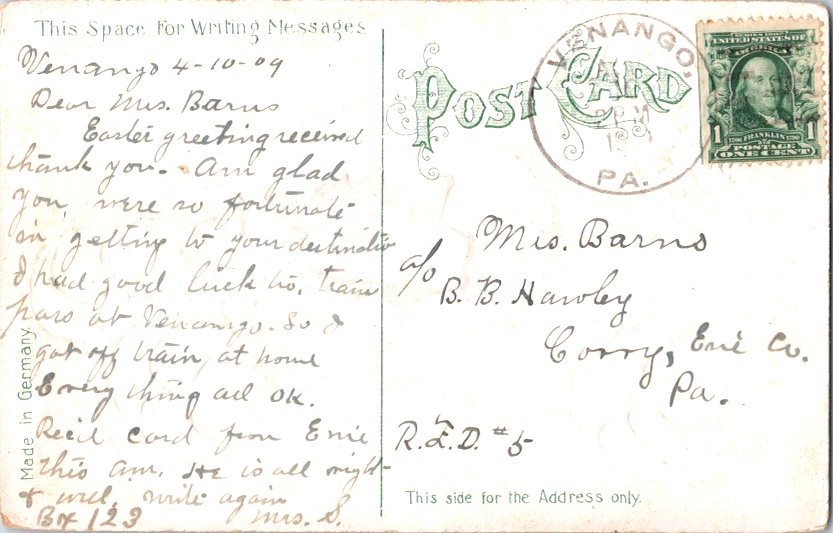 This Space For Writing Messages
Venango 4-10-09
Dear Mrs. Barns
Easter greeting received
thank you. Am glad
you were so fortunate
in getting to your destinatio
I had good luck to, train
pass at Venango. So I
got off train at home
Every thing all OK.
Rec'd card from Erie
this am. He is all right
& well. write again
Bx 123 Mrs. S.
Made in Germany.
POST CARD
VENANGO,
PM
PA.
SERIES 1902
UNITED STATES OF
AMERICA
1 1706 FRANKLIN 1790 1
POSTAGE
ONE CENT
Mrs. Barns
c/o
B. B. Hawley
Corry, Erie Co.
Pa.
R.F.D. #5
This side for the Address only.